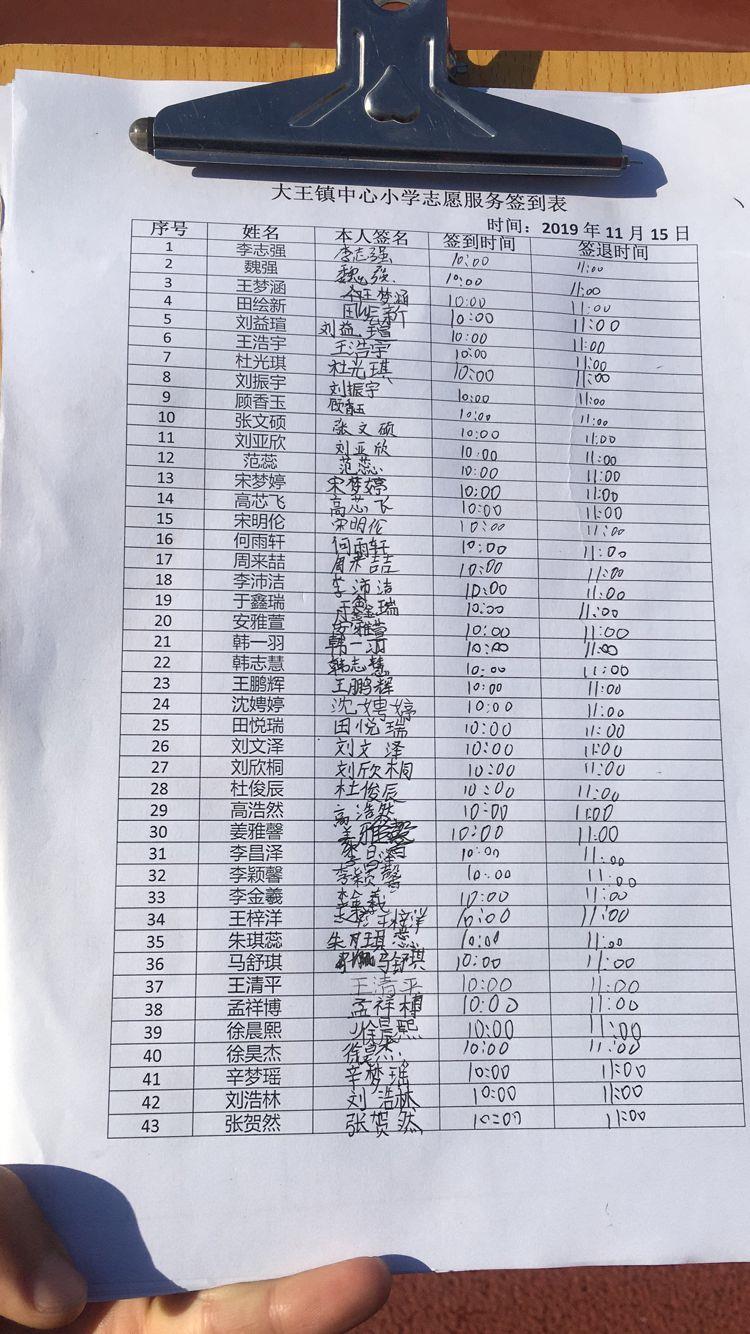 大王镇中心小学志愿服务签到表
时间：2019 年 11 月 15 日
序号 姓名 本人签名 签到时间 签退时间
1 李志强 李志强 10:00 11:00
2 魏强 魏强 10:00 11:00
3 王梦涵 王梦涵 10:00 11:00
4 田绘新 田绘新 10:00 11:00
5 刘益瑄 刘益瑄 10:00 11:00
6 王浩宇 王浩宇 10:00 11:00
7 杜光琪 杜光琪 10:00 11:00
8 刘振宇 刘振宇 10:00 11:00
9 顾香玉 顾香玉 10:00 11:00
10 张文硕 张文硕 10:00 11:00
11 刘亚欣 刘亚欣 10:00 11:00
12 范蕊 范蕊 10:00 11:00
13 宋梦婷 宋梦婷 10:00 11:00
14 高芯飞 高芯飞 10:00 11:00
15 宋明伦 宋明伦 10:00 11:00
16 何雨轩 何雨轩 10:00 11:00
17 周来喆 周来喆 10:00 11:00
18 李沛洁 李沛洁 10:00 11:00
19 于鑫瑞 于鑫瑞 10:00 11:00
20 安雅萱 安雅萱 10:00 11:00
21 韩一羽 韩一羽 10:00 11:00
22 韩志慧 韩志慧 10:00 11:00
23 王鹏辉 王鹏辉 10:00 11:00
24 沈娉婷 沈娉婷 10:00 11:00
25 田悦瑞 田悦瑞 10:00 11:00
26 刘文泽 刘文泽 10:00 11:00
27 刘欣桐 刘欣桐 10:00 11:00
28 杜俊辰 杜俊辰 10:00 11:00
29 高浩然 高浩然 10:00 11:00
30 姜雅馨 姜雅馨 10:00 11:00
31 李昌泽 李昌泽 10:00 11:00
32 李颖馨 李颖馨 10:00 11:00
33 李金羲 李金羲 10:00 11:00
34 王梓洋 王梓洋 10:00 11:00
35 朱琪蕊 朱琪蕊 10:00 11:00
36 马舒琪 马舒琪 10:00 11:00
37 王清平 王清平 10:00 11:00
38 孟祥博 孟祥博 10:00 11:00
39 徐晨熙 徐晨熙 10:00 11:00
40 徐昊杰 徐昊杰 10:00 11:00
41 辛梦瑶 辛梦瑶 10:00 11:00
42 刘浩林 刘浩林 10:00 11:00
43 张贺然 张贺然 10:00 11:00